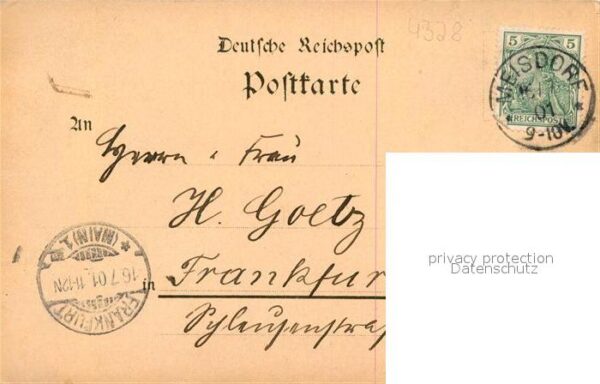 4328
Deutsche Reichspost
Postkarte
5 5
REICHSPOST
MEISDORF
01
9-10V.
An
Herrn u. Frau
H. Goetz
in Frankfur
Schleusenstraß
FRANKFURT
(MAIN) 1.
16.7.01. 11-12N
privacy protection
Datenschutz